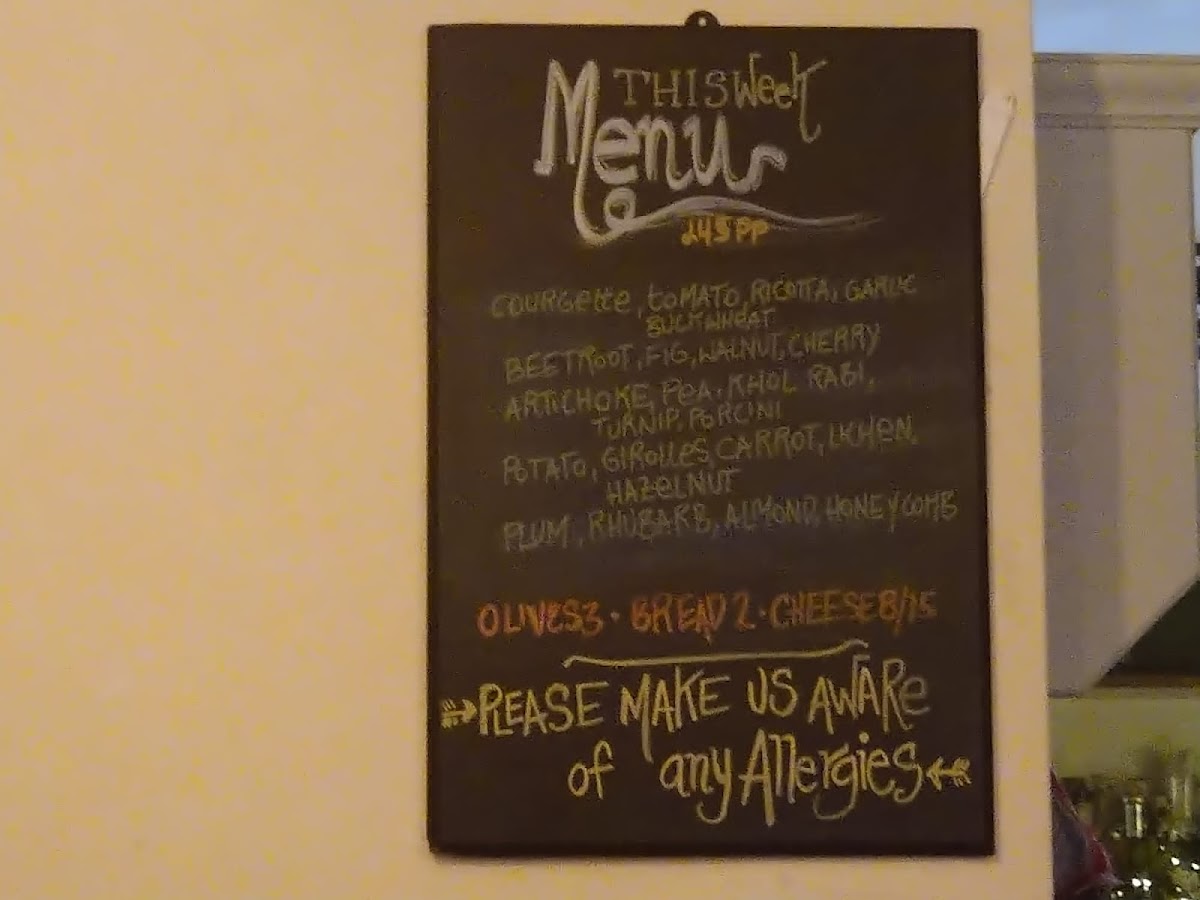 THIS Week
Menu
COURGette, tOMATO, RICOTTA, GARLIC
BUCKWHeAT
BEETROOT, FIG, WALNUT, CHERRY
ARTICHOKE, PeA, KHOL RABI,
TURNIP, PORCINI
POTATO, GIROLLeS, CARROT, LICHEN,
HAZeLNUT
PLUM, RHUBARB, ALMOND, HONEYCOMB
OLIVeS 3 · BREAD 2 · CHEESE 8/15
PLEASE MAKE US AWARe
of any Allergies